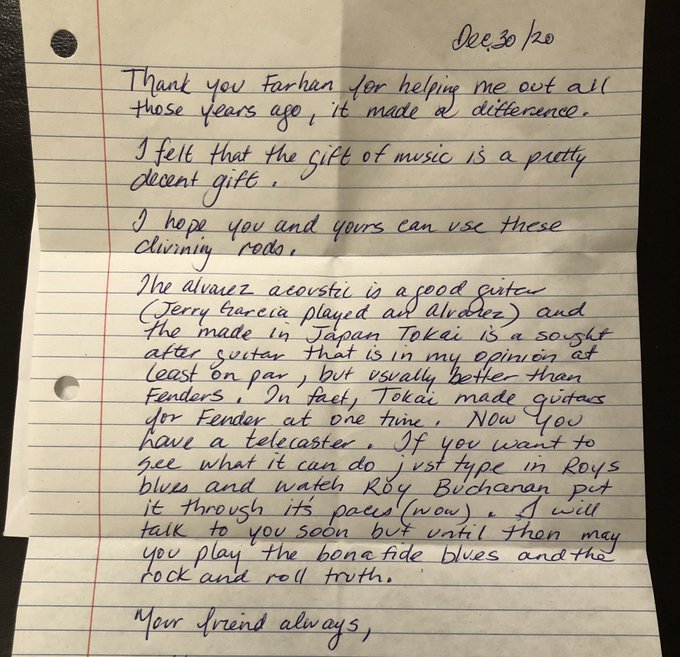 Dec, 30/20
Thank you Farhan for helping me out all
those years ago, it made a difference.
I felt that the gift of music is a pretty
decent gift.
I hope you and yours can use these
divining rods.
The alvarez acoustic is a good guitar
(Jerry Garcia played an alvarez) and
the made in Japan Tokai is a sought
after guitar that is in my opinion at
least on par, but usually better than
Fenders. In fact, Tokai made guitars
for Fender at one time. Now you
have a telecaster. If you want to
see what it can do just type in Roys
blues and watch Roy Buchanan put
it through it's paces (wow). I will
talk to you soon but until then may
you play the bonafide blues and the
rock and roll truth.
Your friend always,